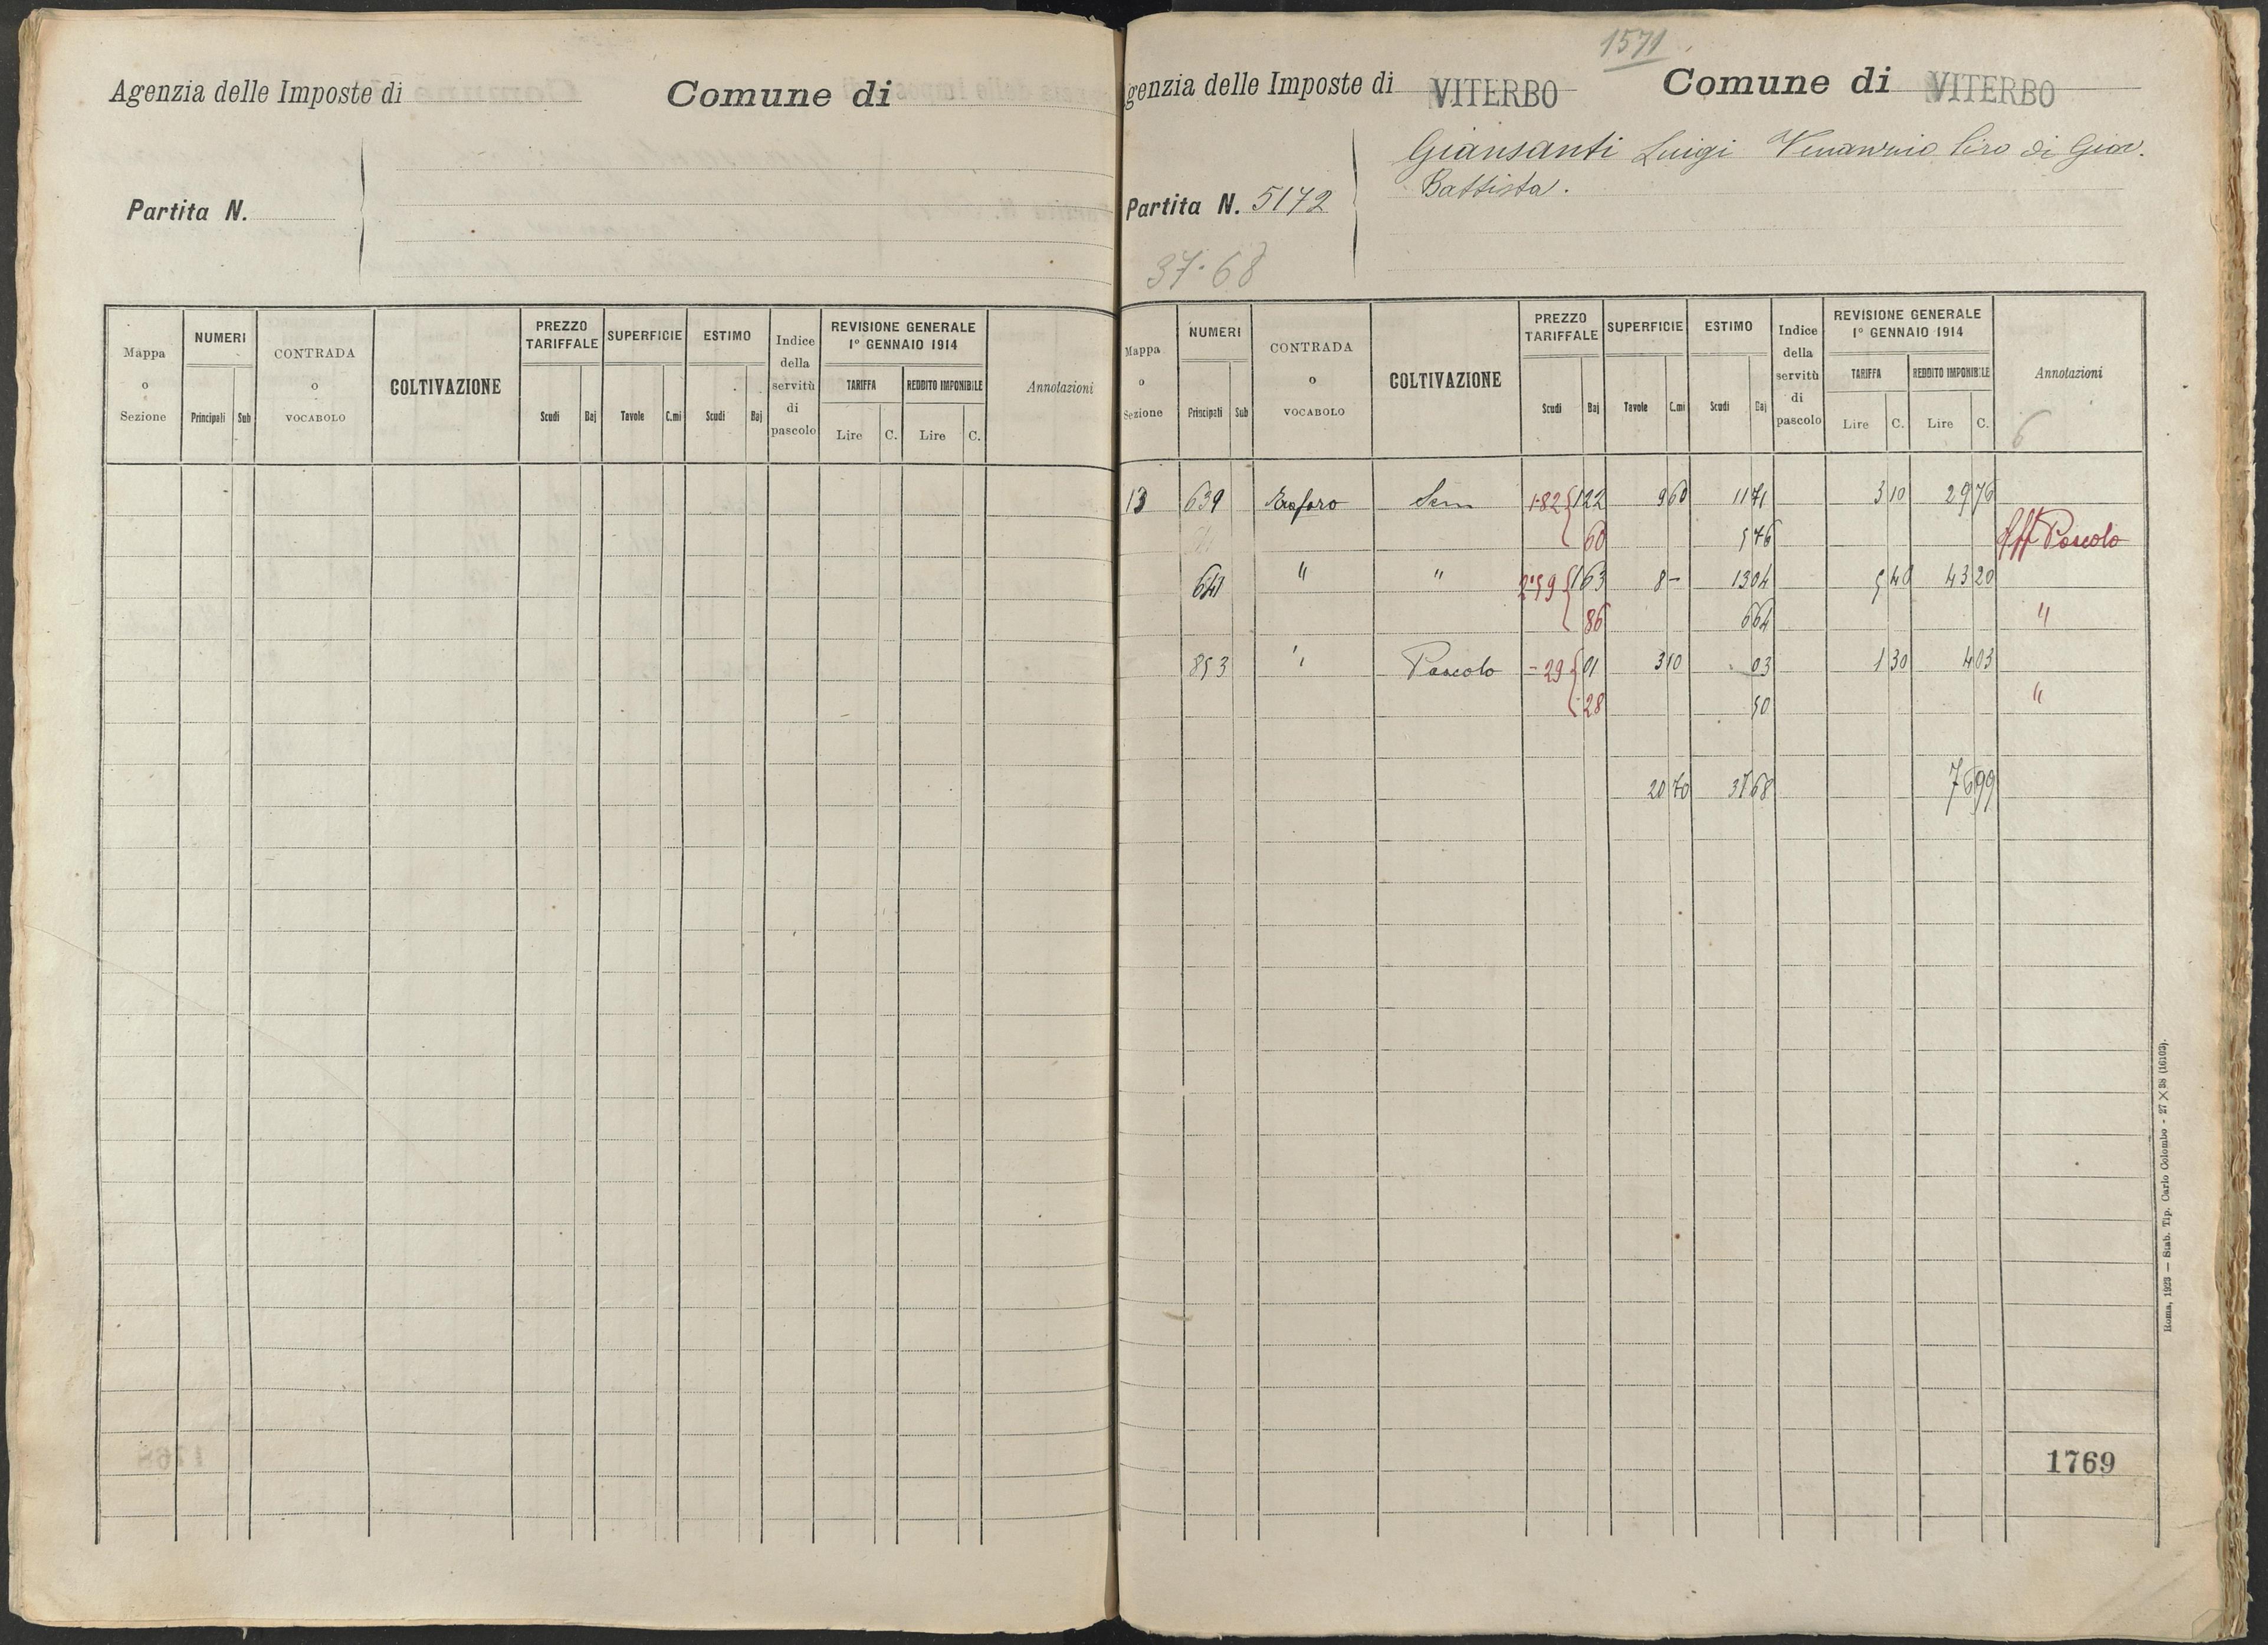 Agenzia delle Imposte di Comune di
Partita N.
Mappa o Sezione NUMERI Principali Sub CONTRADA o VOCABOLO COLTIVAZIONE PREZZO TARIFFALE Scudi Baj SUPERFICIE Tavole C.mi ESTIMO Scudi Baj Indice della servitù di pascolo REVISIONE GENERALE 1° GENNAIO 1914 TARIFFA Lire C. REDDITO IMPONIBILE Lire C. Annotazioni
1571
genzia delle Imposte di VITERBO Comune di VITERBO
Giansanti Luigi Venanzio Piro di Giov.
Battista.
Partita N. 5172
37·68
Mappa o Sezione NUMERI Principali Sub CONTRADA o VOCABOLO COLTIVAZIONE PREZZO TARIFFALE Scudi Baj SUPERFICIE Tavole C.mi ESTIMO Scudi Baj Indice della servitù di pascolo REVISIONE GENERALE 1° GENNAIO 1914 TARIFFA Lire C. REDDITO IMPONIBILE Lire C. Annotazioni
6
13 639 Sem 1·82 1 22 9 60 11 71 3 10 29 76
60 5 76 Aff Pascolo
641 " " 2·59 1 63 8 - 13 04 5 40 43 20
86 6 64 "
853 " Pascolo - 29 01 3 10 03 1 30 4 03
28 90 "
20 70 37 68 76 99
Roma, 1923 — Stab. Tip. Carlo Colombo - 27 × 38 (16103).
1769